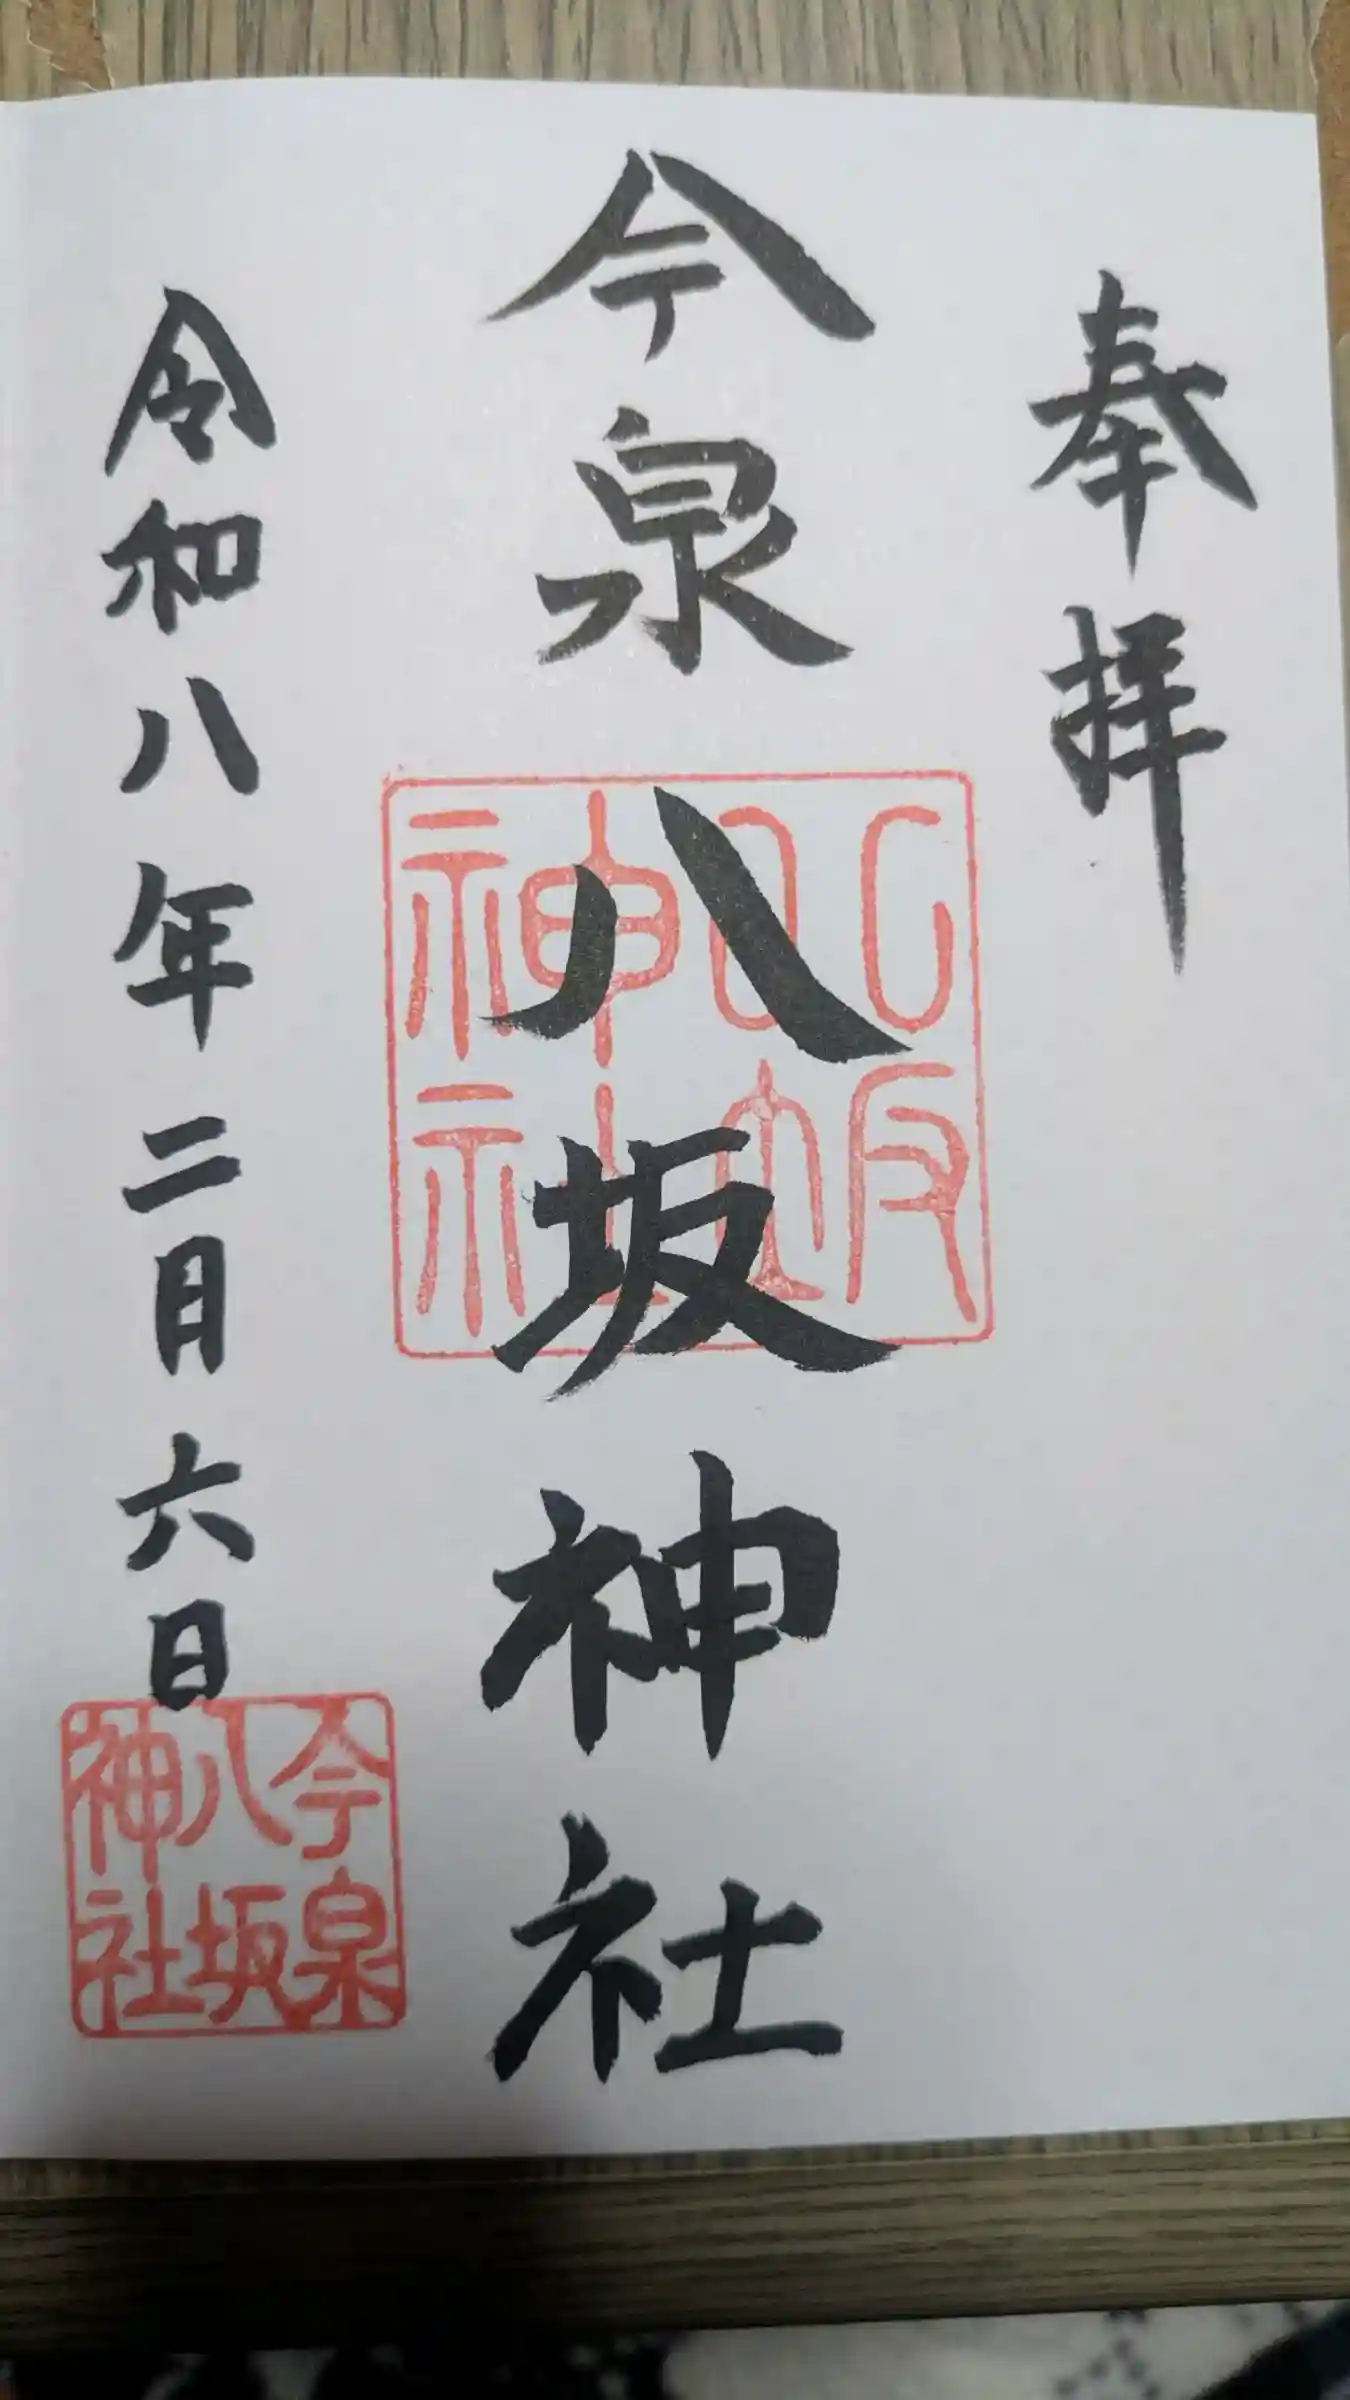 奉拝
今泉八坂神社
八坂神社
令和八年二月六日
今泉八坂神社